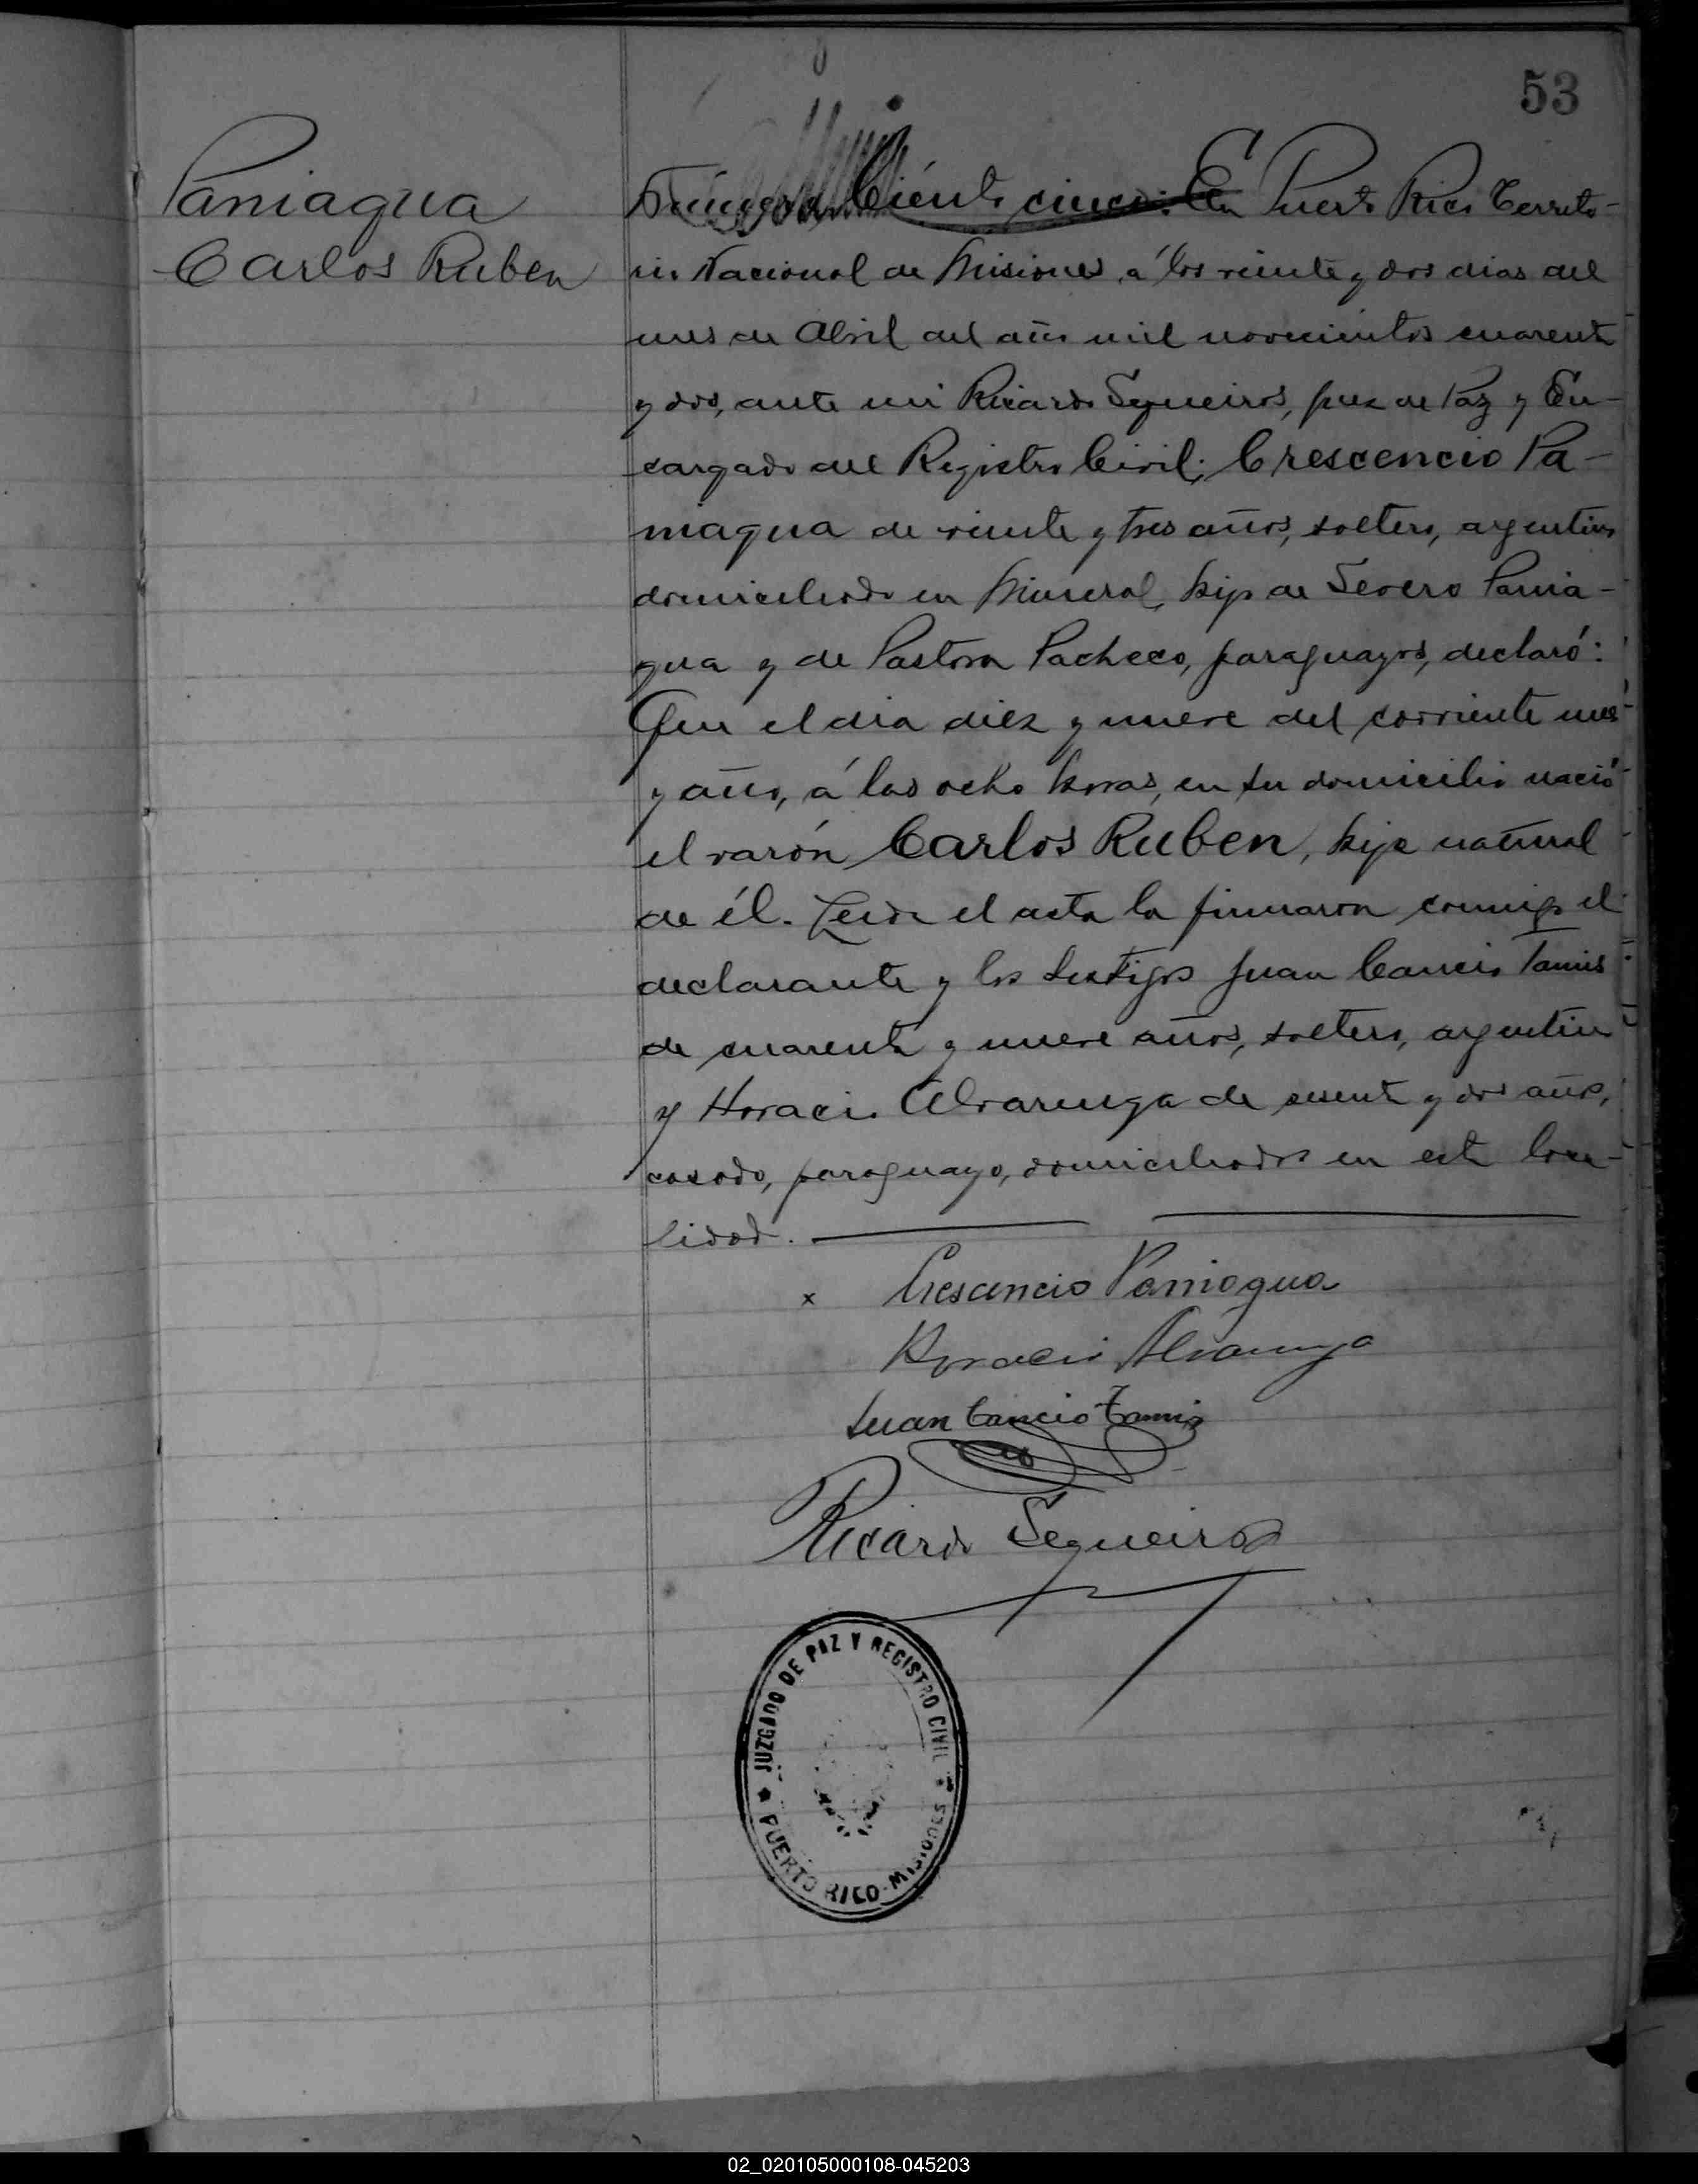 53
Paniagua
Carlos Ruben
Número Ciento cinco: En Puerto Rico Territo-
rio Nacional de Misiones, á los veinte y dos dias del
mes de Abril del año mil novecientos cuarenta
y dos, ante mi Ricardo Sequeiros, Juez de Paz y En-
cargado del Registro Civil; Crescencio Pa-
niagua de veinte y tres años, soltero, argentino
domiciliado en Mineral, hijo de Severo Pania-
gua y de Pastora Pacheco, paraguayos, declaró:
Que el dia diez y nueve del corriente mes
y año, á las ocho horas, en su domicilio nació
el varón Carlos Ruben, hijo natural
de él. Leida el acta la firmaron conmigo el
declarante y los testigos Juan Cancio Tamis
de cuarenta y nueve años, soltero, argentino
y Horacio Alvarenga de sesenta y dos años,
casado, paraguayo, domiciliados en esta loca-
lidad.
x Cresancio Paniagua
Horacio Alvarenga
Juan Cancio Tamis
Ricardo Sequeiros
JUZGADO DE PAZ Y REGISTRO CIVIL
PUERTO RICO - MISIONES
02_020105000108-045203